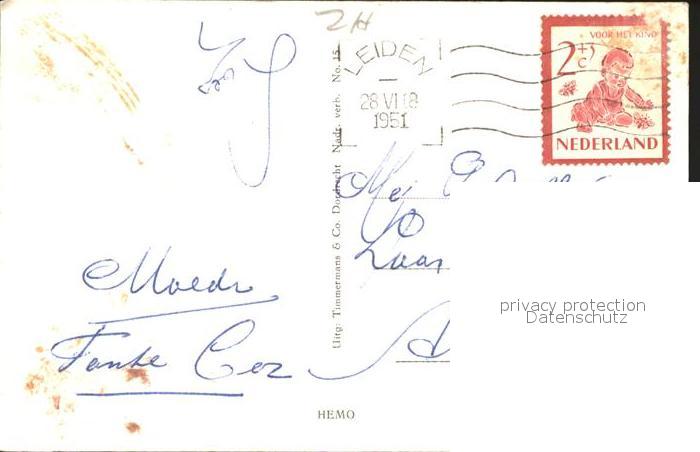 2H
LEIDEN
28 VI 18
1951
VOOR HET KIND
2+3
c
NEDERLAND
Uitg: Timmermans & Co. Dordrecht Nadr. verb. No. 15
Mej
Moeder
Tante Cor
privacy protection
Datenschutz
HEMO